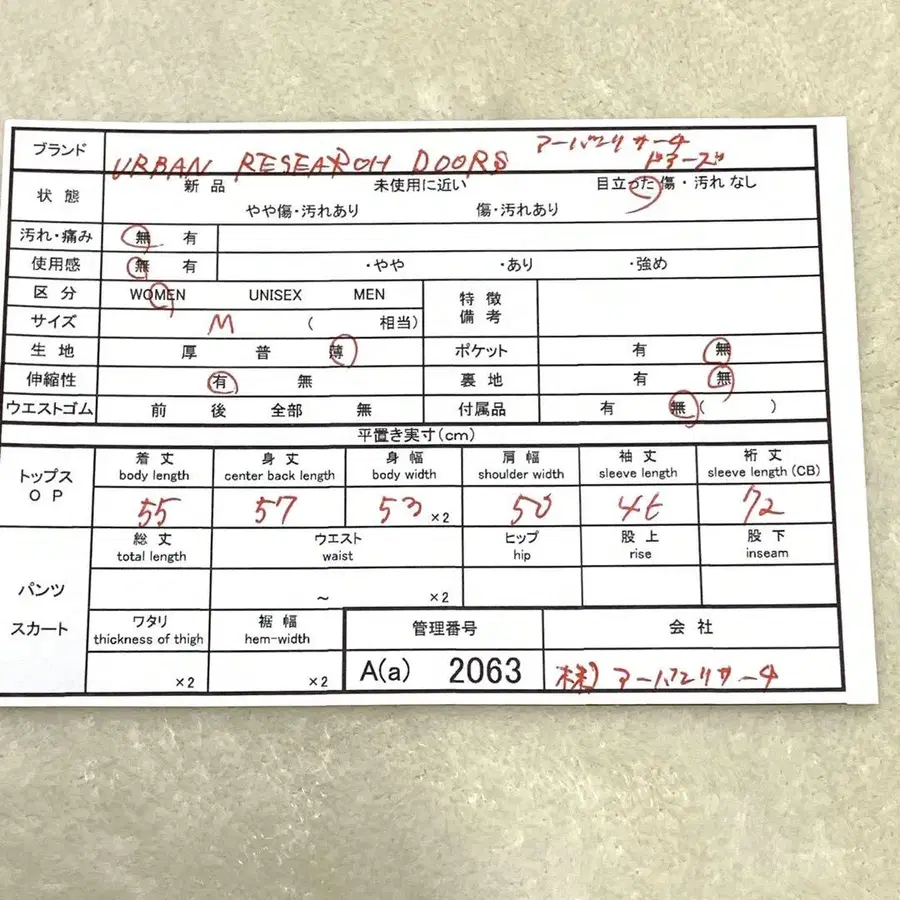 ブランド URBAN RESEARCH DOORS アーバンリサーチ
ドアーズ
状態 新品 未使用に近い 目立った傷・汚れなし
やや傷・汚れあり 傷・汚れあり
汚れ・痛み 無 有
使用感 無 有 ・やや ・あり ・強め
区分 WOMEN UNISEX MEN 特徴
備考
サイズ M ( 相当)
生地 厚 普 薄 ポケット 有 無
伸縮性 有 無 裏地 有 無
ウエストゴム 前 後 全部 無 付属品 有 無 ( )
平置き実寸(cm)
トップス
OP
着丈 身丈 身幅 肩幅 袖丈 裄丈
body length center back length body width shoulder width sleeve length sleeve length (CB)
55 57 53 ×2 50 46 72
総丈 ウエスト ヒップ 股上 股下
total length waist hip rise inseam
パンツ
~ ×2
スカート
ワタリ 裾幅 管理番号 会社
thickness of thigh hem-width
×2 ×2 A(a) 2063 株) アーバンリサーチ